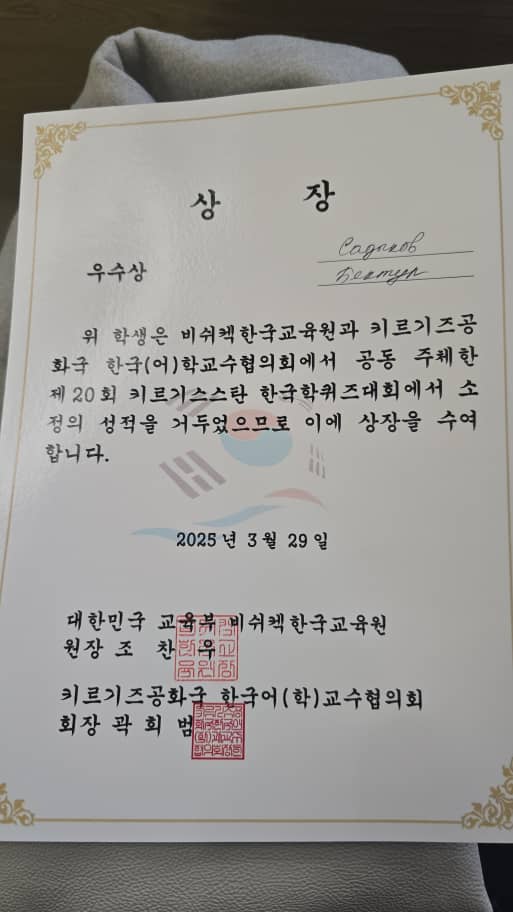 상 장
Садыков
Бектур
우수상
위 학생은 비쉬켁한국교육원과 키르기즈공
화국 한국(어)학교수협의회에서 공동 주체한
제20회 키르기스스탄 한국학퀴즈대회에서 소
정의 성적을 거두었으므로 이에 상장을 수여
합니다.
2025년 3월 29일
대한민국 교육부 비쉬켁한국교육원
원장 조 찬 우
키르기즈공화국 한국어(학)교수협의회
회장 곽 희 범